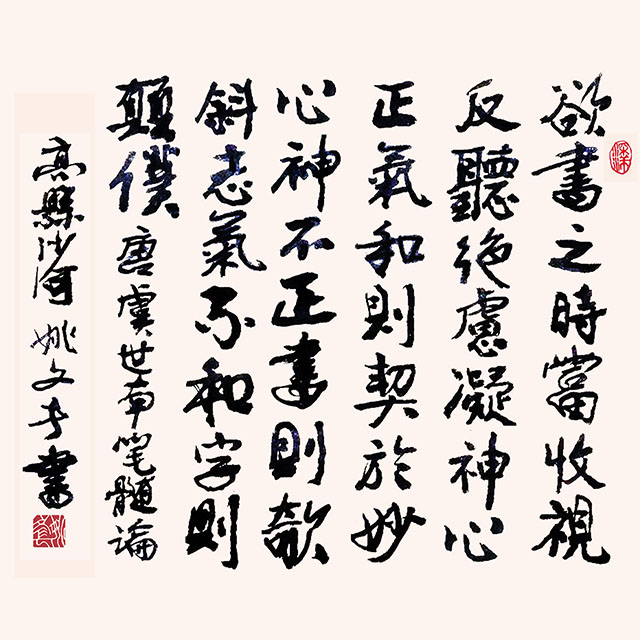 欲書之時當收視
反聽絕慮凝神心
正氣和則契於妙
心神不正書則欹
斜志氣不和字則
顛僕 唐虞世南笔髓論
高縣沙河 姚文書